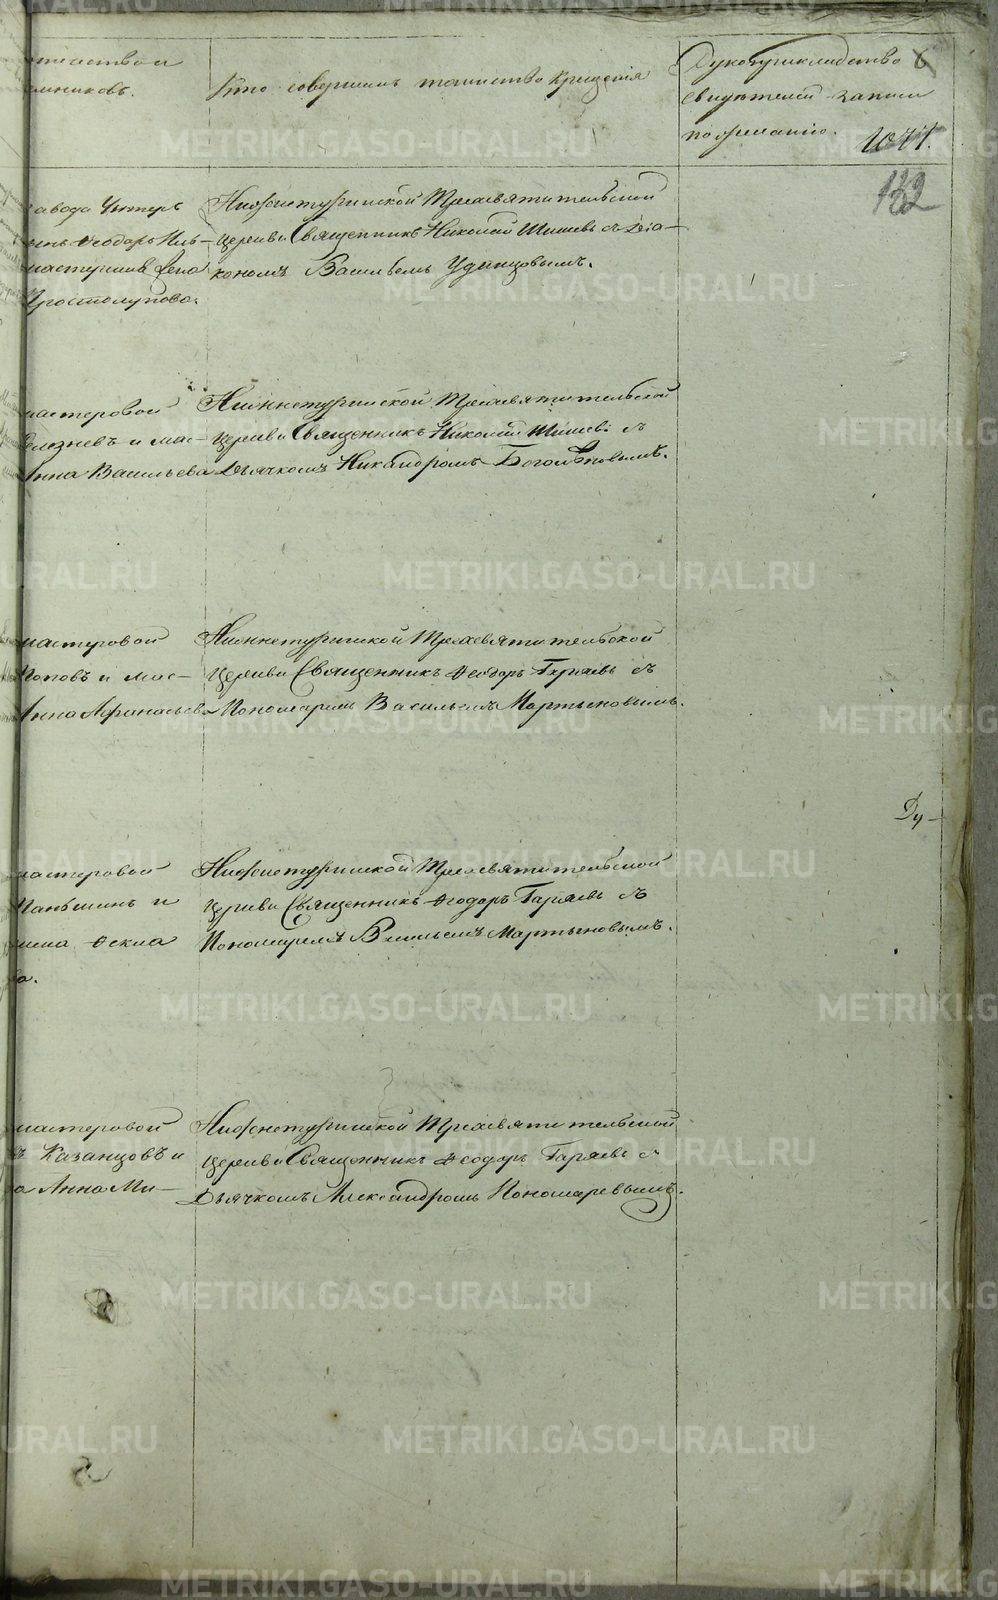 Кто совершилъ таинство Крещенія
Рукоприкладство
свидѣтелей записи
по желанію.
6
1071.
132
завода Унтеръ
Ѳеодоръ
мастерская
Простолупова.
Нижнетуринской Трехсвятительской
Церкви Священникъ Николай Шишевъ съ Діа-
кономъ Васильемъ Удинцовымъ.
мастеровой
и мас-
Анна Васильева
Нижнетуринской Трехсвятительской
Церкви Священникъ Николай Шишевъ съ
Дьячкомъ Никандромъ Боголѣповымъ.
мастеровой
Поповъ и мас-
Анна Аѳанасьева
Нижнетуринской Трехсвятительской
Церкви Священникъ Ѳеодоръ Гаряевъ съ
Пономаремъ Васильемъ Мартыновымъ.
мастеровой
Паньшинъ и
Ѳекла
ва.
Нижнетуринской Трехсвятительской
Церкви Священникъ Ѳеодоръ Гаряевъ съ
Пономаремъ Васильемъ Мартыновымъ.
Ду-
мастеровой
Казанцовъ и
Анна Ми-
Нижнетуринской Трехсвятительской
Церкви Священникъ Ѳеодоръ Гаряевъ съ
Дьячкомъ Александромъ Пономаревымъ.
METRIKI.GASO-URAL.RU